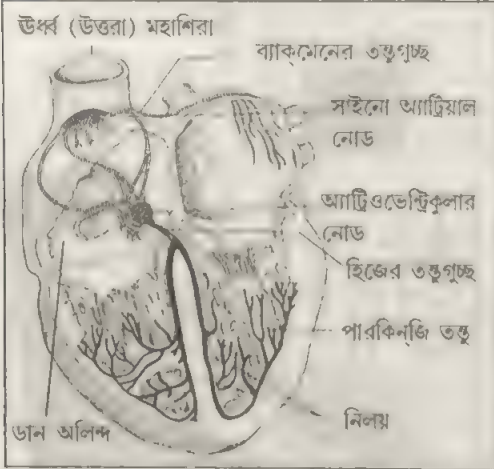 ঊর্ধ্ব (উত্তরা) মহাশিরা
ব্যাক্‌মেনের তন্তুগুচ্ছ
সাইনো অ্যাট্রিয়াল
নোড
অ্যাট্রিওভেন্ট্রিকুলার
নোড
হিজের তন্তুগুচ্ছ
পারকিন্‌জি তন্তু
নিলয়
ডান অলিন্দ